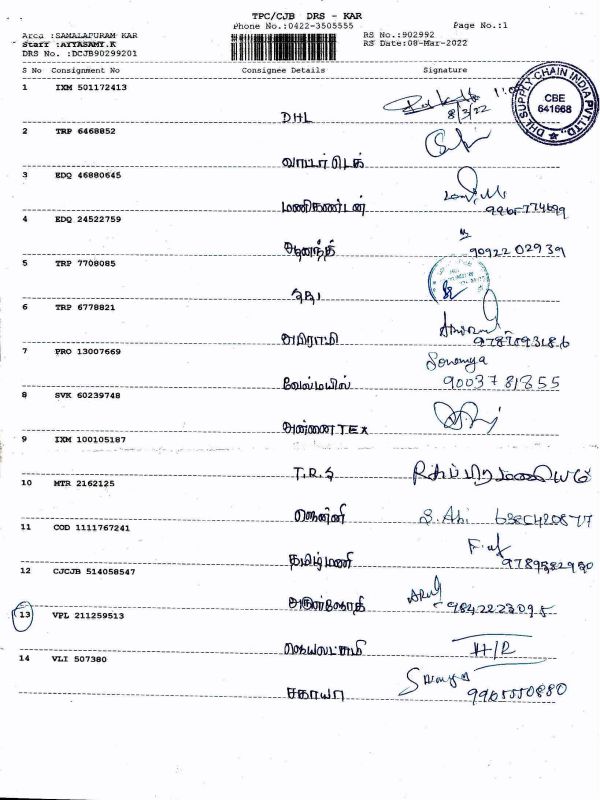 TPC/CJB DRS - KAR
Phone No.:0422-3505555 Page No.:1
Area :SAMALAPURAM KAR RS No.:902992
Staff :AIYASAMY.K RS Date:08-Mar-2022
DRS No. :DCJB90299201
S No Consignment No Consignee Details Signature
1 IXM 501172413
DHL 8/3/22
DHL SUPPLY CHAIN INDIA PVT.LTD.,
CBE
641668
2 TRP 6468852
வாட்டர் டெக்
3 EDQ 46880645
மணிகண்டன்
4 EDQ 24522759
ஆனந்த் 90922 02939
5 TRP 7708085
6 TRP 6778821
அபிராமி
7 PRO 13007669 Sowmya
வேல்மயில் 9003781855
8 SVK 60239748
அன்னை TEX
9 IXM 100105187
T.R.S
10 MTR 2162125
ஜென்னி S. Abi
11 COD 1111767241
தமிழ்மணி
12 CJCJB 514058547
அருள்ஜோதி 9842223095
13 VPL 211259513
ஜெயலட்சுமி H/R
14 VLI 507380
சகாயா 9965550880